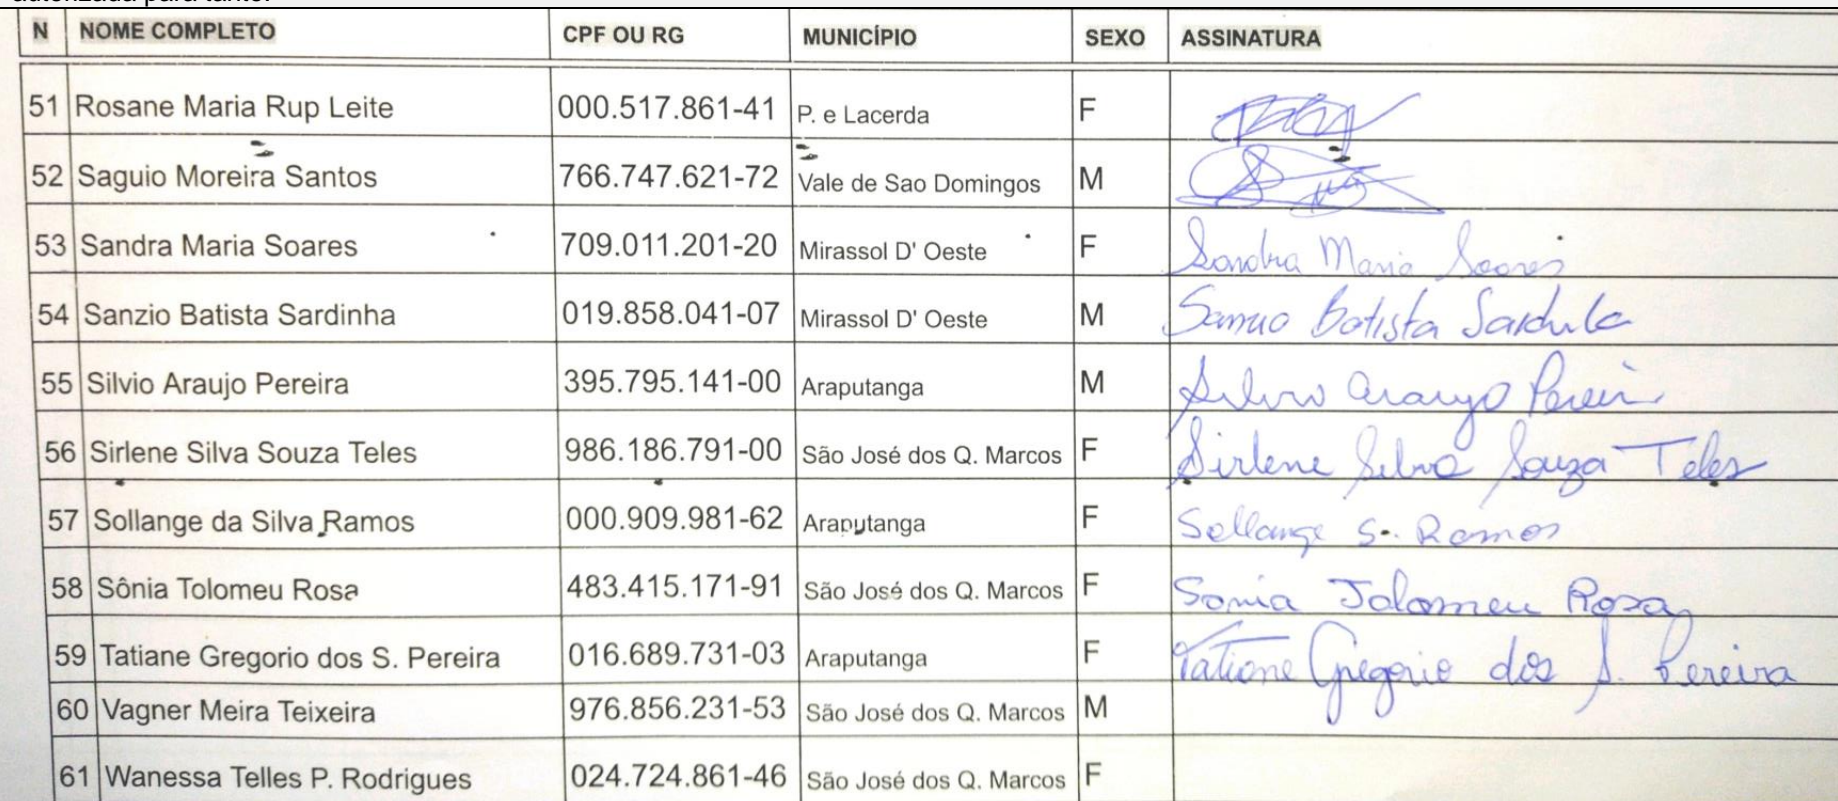 autorizada para tanto.
N NOME COMPLETO CPF OU RG MUNICÍPIO SEXO ASSINATURA
51 Rosane Maria Rup Leite 000.517.861-41 P. e Lacerda F
52 Saguio Moreira Santos 766.747.621-72 Vale de Sao Domingos M
53 Sandra Maria Soares 709.011.201-20 Mirassol D' Oeste F Sandra Maria Soares
54 Sanzio Batista Sardinha 019.858.041-07 Mirassol D' Oeste M Batista
55 Silvio Araujo Pereira 395.795.141-00 Araputanga M Silvio Araujo
56 Sirlene Silva Souza Teles 986.186.791-00 São José dos Q. Marcos F Sirlene Silva Souza Teles
57 Sollange da Silva Ramos 000.909.981-62 Araputanga F Sollange S. Ramos
58 Sônia Tolomeu Rosa 483.415.171-91 São José dos Q. Marcos F Sonia Tolomeu Rosa
59 Tatiane Gregorio dos S. Pereira 016.689.731-03 Araputanga F Tatiane Gregorio dos S. Pereira
60 Vagner Meira Teixeira 976.856.231-53 São José dos Q. Marcos M
61 Wanessa Telles P. Rodrigues 024.724.861-46 São José dos Q. Marcos F